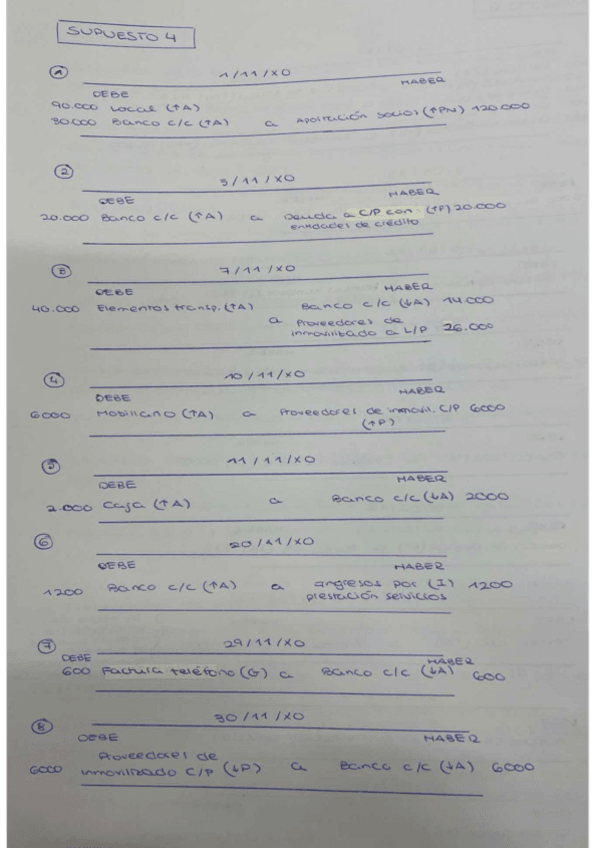 SUPUESTO 4
1
1/11/X0
DEBE HABER
90.000 Local (↑A)
30.000 Banco c/c (↑A) a Aportación socios (↑PN) 120.000
2
5/11/X0
DEBE HABER
20.000 Banco c/c (↑A) a Deuda a C/P con (↑P) 20.000
entidades de crédito
3
7/11/X0
DEBE HABER
40.000 Elementos transp. (↑A) Banco c/c (↓A) 14.000
a Proveedores de
inmovilizado a L/P 26.000
4
10/11/X0
DEBE HABER
6000 Mobiliario (↑A) a Proveedores de inmovil. C/P 6000
(↑P)
5
11/11/X0
DEBE HABER
2.000 Caja (↑A) a Banco c/c (↓A) 2000
6
20/11/X0
DEBE HABER
1200 Banco c/c (↑A) a ingresos por (I) 1200
prestación servicios
7
29/11/X0
DEBE HABER
600 Factura teléfono (G) a Banco c/c (↓A) 600
8
30/11/X0
DEBE HABER
Proveedores de
6000 inmovilizado C/P (↓P) a Banco c/c (↓A) 6000